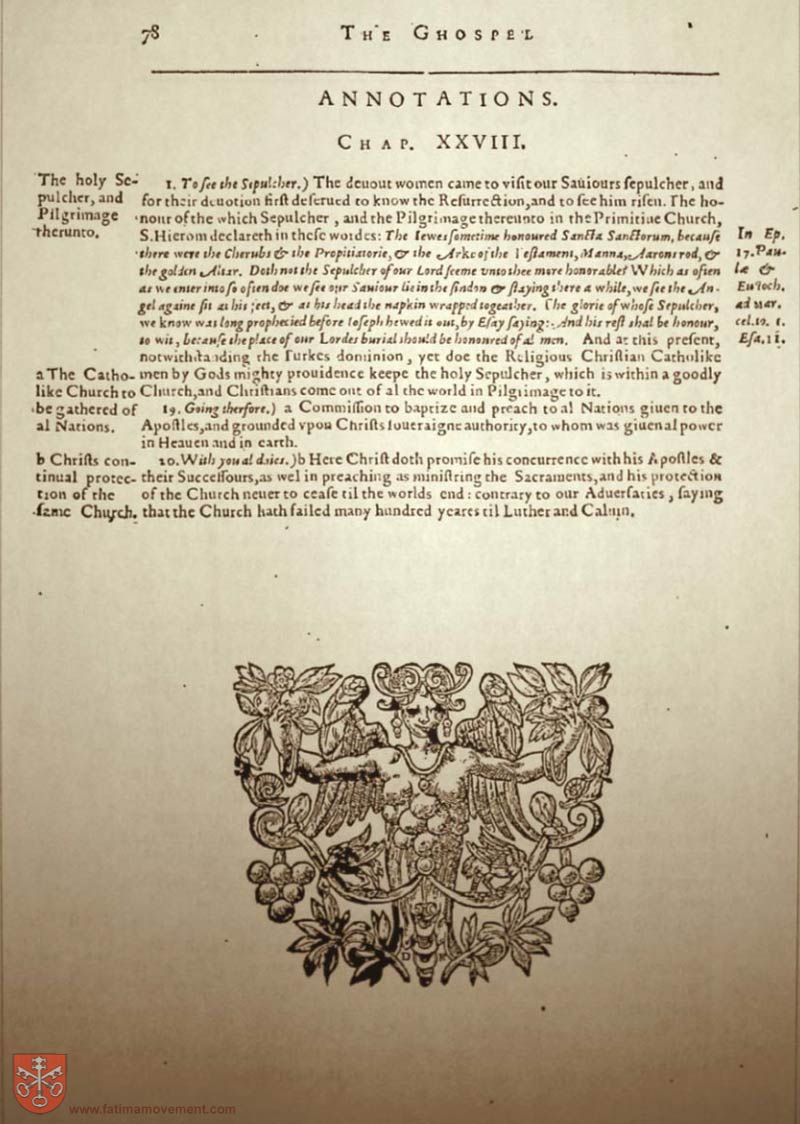 78 THE GHOSPEL
ANNOTATIONS.
CHAP. XXVIII.
The holy Se-
pulcher, and
Pilgrimage
therunto.
1. To ſee the Sepulcher.) The deuout women came to viſit our Sauiours ſepulcher, and
for their deuotion firſt deſerued to know the Reſurrection, and to ſee him riſen. The ho-
nour of the which Sepulcher, and the Pilgrimage thereunto in the Primitiue Church,
S. Hierom declareth in theſe wordes: The Iewes ſometime honoured Sancta Sanctorum, becauſe
there were the Cherubs & the Propitiatorie, & the Arke of the Teſtament, Manna, Aarons rod, &
the golden Altar. Doth not the Sepulcher of our Lord ſeeme vnto thee more honorable? Which as often
as we enter into ſo often doe we ſee our Sauiour lie in the ſindon & ſtaying there a while, we ſee the An-
gel againe ſit at his feet, & at his head the napkin wrapped togeather. The glorie of whoſe Sepulcher,
we know was long prophecied before Ioſeph hewed it out, by Eſay ſaying: And his reſt ſhal be honour,
to wit, becauſe the place of our Lordes burial ſhould be honoured of al men. And at this preſent,
notwithſtanding the Turkes dominion, yet doe the Religious Chriſtian Catholike
men by Gods mighty prouidence keepe the holy Sepulcher, which is within a goodly
Church, and Chriſtians come out of al the world in Pilgrimage to it.
In Ep.
17. Pau-
læ &
Euſtoch.
ad Mar-
cel. to. 1.
Eſa. 11.
a The Catho-
like Church to
be gathered of
al Nations.
19. Going therfore.) a Commiſſion to baptize and preach to al Nations giuen to the
Apoſtles, and grounded vpon Chriſts ſoueraigne authority, to whom was giuen al power
in Heauen and in earth.
b Chriſts con-
tinual protec-
tion of the
ſame Church.
20. With you al daies.) b Here Chriſt doth promiſe his concurrence with his Apoſtles &
their Succeſſours, as wel in preaching as miniſtring the Sacraments, and his protection
of the Church neuer to ceaſe til the worlds end: contrary to our Aduerſaries, ſaying
that the Church hath failed many hundred yeares til Luther and Caluin.
www.fatimamovement.com